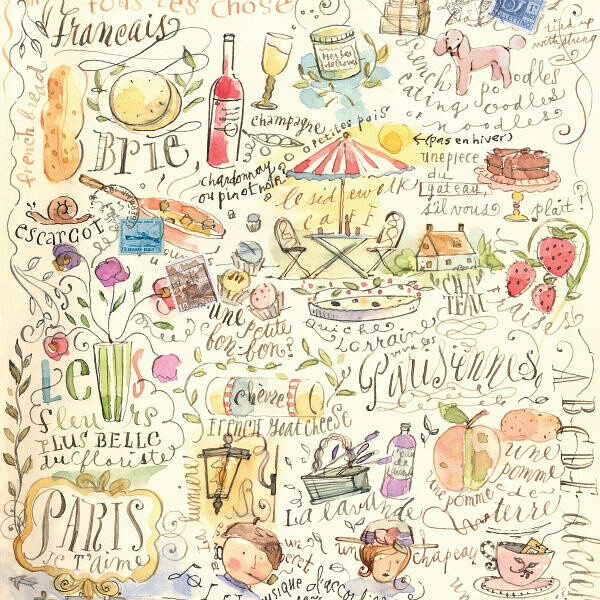 tous les chose
Français
french bread
Brie
Herbes de Provence
champagne
petits pois
chardonnay
ou pinot noir
French poodles
eating oodles
of noodles
tied up
with string
(pas en hiver)
une piece
du
gateau,
s'il vous
plait?
le sidewalk
CAFÉ
escargot
CHA
TEAU
fraises
une
petite
bon-bon?
quiche
Lorraine
vive les
Parisiennes
Les
fleurs
PLUS BELLE
du floriste
chèvre
FRENCH GOAT CHEESE
PARIS
Je T'aime
la lumière
l'eau
de
La lavande
une pomme
une
pomme
de
terre
un beret
un chapeau
musique d'accordion
un
A B C D E